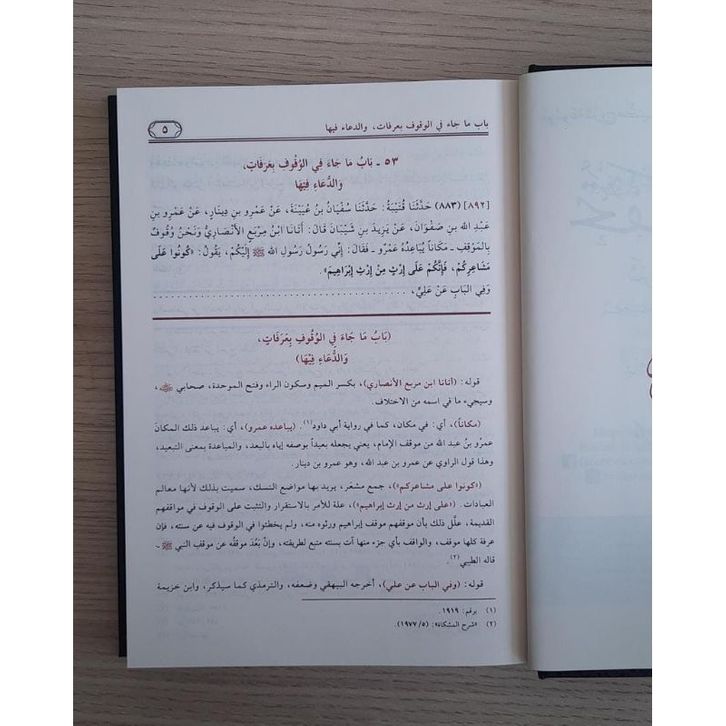 باب ما جاء في الوقوف بعرفات، والدعاء فيها
٥
٥٣ ـ بَابُ مَا جَاءَ فِي الوُقُوفِ بِعَرَفَاتٍ،
وَالدُّعَاءِ فِيْهَا
[٨٩٢] (٨٨٣) حَدَّثَنَا قُتَيْبَةُ: حَدَّثَنَا سُفْيَانُ بنُ عُيَيْنَةَ، عَنْ عَمْرِو بنِ دِينَارٍ، عَنْ عَمْرِو بنِ
عَبْدِ الله بنِ صَفْوَانَ، عَنْ يَزِيدَ بنِ شَيْبَانَ قَالَ: أَتَانَا ابْنُ مِرْبَعٍ الأَنْصَارِيُّ وَنَحْنُ وُقُوفٌ
بِالمَوْقِفِ ـ مَكَاناً يُبَاعِدُهُ عَمْرٌو ـ فَقَالَ: إِنِّي رَسُولُ رَسُولِ الله ﷺ إِلَيْكُمْ، يَقُولُ: «كُونُوا عَلَى
مَشَاعِرِكُمْ، فَإِنَّكُمْ عَلَى إِرْثٍ مِنْ إِرْثِ إِبْرَاهِيمَ».
وَفِي البَابِ عَنْ عَلِيٍّ، ..........................................
(بَابُ مَا جَاءَ فِي الْوُقُوفِ بِعَرَفَاتٍ،
وَالدُّعَاءِ فِيْهَا)
قوله: (أتانا ابن مربع الأنصاري)، بكسر الميم وسكون الراء وفتح الموحدة، صحابي ﷺ،
وسيجيء ما في اسمه من الاختلاف.
(مكاناً)، أي: في مكان، كما في رواية أبي داود(١). (يباعده عمرو)، أي: يباعد ذلك المكانَ
عمرُو بن عبد الله من موقف الإمام، يعني يجعله بعيداً بوصفه إياه بالبعد، والمباعدة بمعنى التبعيد،
وهذا قول الراوي عن عمرو بن عبد الله، وهو عمرو بن دينار.
(«كونوا على مشاعركم»)، جمع مشعَر، يريد بها مواضع النسك، سميت بذلك لأنها معالم
العبادات. («على إرث من إرث إبراهيم»)، علة للأمر بالاستقرار والتثبت على الوقوف في مواقفهم
القديمة، علّل ذلك بأن موقفهم موقف إبراهيم ورثوه منه، ولم يخطئوا في الوقوف فيه عن سنته، فإن
عرفة كلها موقف، والواقف بأي جزء منها آت بسنته متبع لطريقته، وإنْ بَعُدَ موقفُه عن موقف النبي ﷺ،
قاله الطيبي(٢).
قوله: (وفي الباب عن علي)، أخرجه البيهقي وضعفه، والترمذي كما سيذكر، وابن خزيمة
(١) برقم: ١٩١٩.
(٢) «شرح المشكاة»: (٥/ ١٩٧٧).